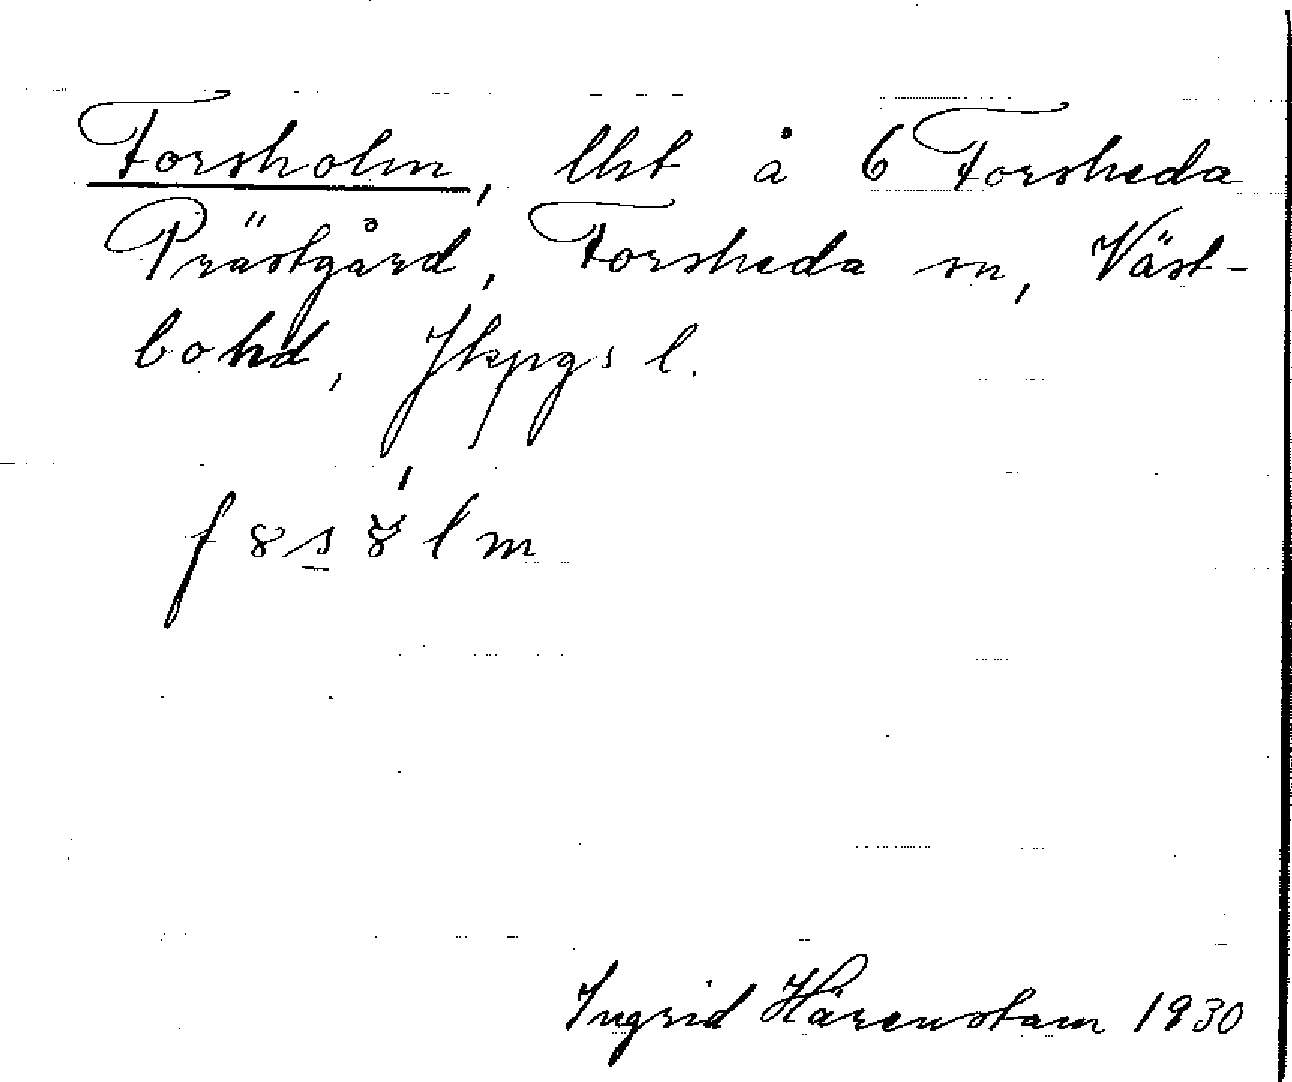 Forsholm, lht å 6 Forsheda
Prästgård, Forsheda sn, Väst-
bo hd, Jkpgs l.
Ingrid Härenstam 1930